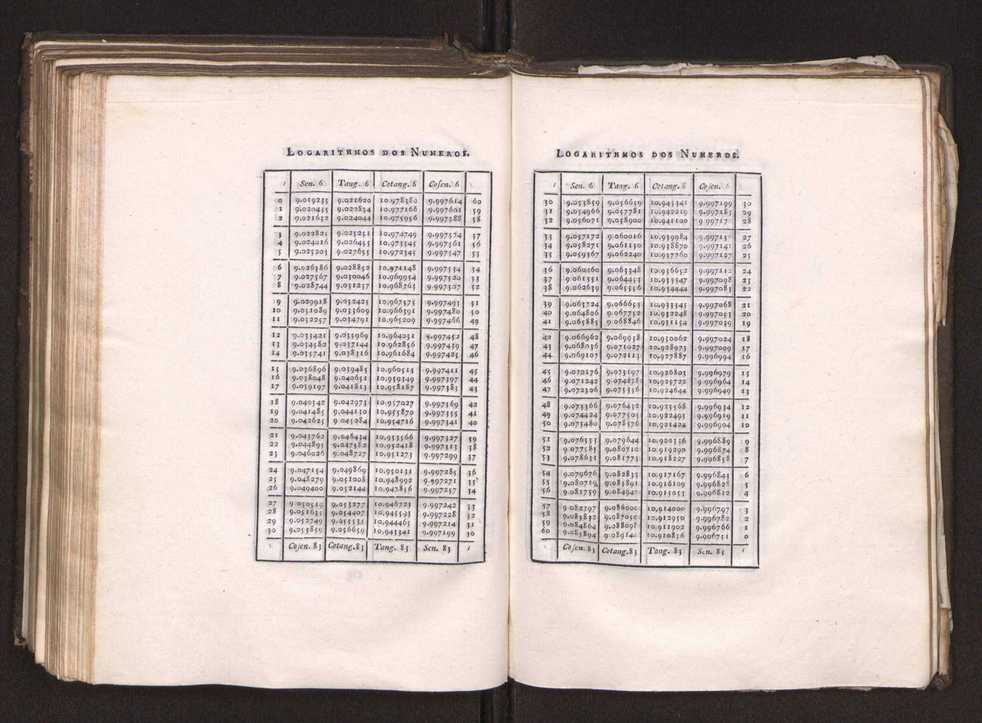 LOGARITHMOS DOS NUMEROS.
ı Sen. 6 Tang. 6 Cotang. 6 Cosen. 6
0 9.019235 9.021620 10.978380 9.997614 60
1 9.020435 9.022834 10.977166 9.997601 59
2 9.021632 9.024044 10.975956 9.997588 58
3 9.022825 9.025251 10.974749 9.997574 57
4 9.024016 9.026455 10.973545 9.997561 56
5 9.025203 9.027655 10.972345 9.997547 55
6 9.026386 9.028852 10.971148 9.997534 54
7 9.027567 9.030046 10.969954 9.997520 53
8 9.028744 9.031237 10.968763 9.997507 52
9 9.029918 9.032425 10.967575 9.997493 51
10 9.031089 9.033609 10.966391 9.997480 50
11 9.032257 9.034791 10.965209 9.997466 49
12 9.033421 9.035969 10.964031 9.997452 48
13 9.034582 9.037144 10.962856 9.997439 47
14 9.035741 9.038316 10.961684 9.997425 46
15 9.036896 9.039485 10.960515 9.997411 45
16 9.038048 9.040651 10.959349 9.997397 44
17 9.039197 9.041813 10.958187 9.997383 43
18 9.040342 9.042973 10.957027 9.997369 42
19 9.041485 9.044130 10.955870 9.997355 41
20 9.042625 9.045284 10.954716 9.997341 40
21 9.043762 9.046434 10.953566 9.997327 39
22 9.044895 9.047582 10.952418 9.997313 38
23 9.046026 9.048727 10.951273 9.997299 37
24 9.047154 9.049869 10.950131 9.997285 36
25 9.048279 9.051008 10.948992 9.997271 35
26 9.049400 9.052144 10.947856 9.997257 34
27 9.050519 9.053277 10.946723 9.997242 33
28 9.051635 9.054407 10.945593 9.997228 32
29 9.052749 9.055535 10.944465 9.997214 31
30 9.053859 9.056659 10.943341 9.997199 30
Cosen. 83 Cotang. 83 Tang. 83 Sen. 83 ı
LOGARITHMOS DOS NUMEROS.
ı Sen. 6 Tang. 6 Cotang. 6 Cosen. 6
30 9.053859 9.056659 10.943341 9.997199 30
31 9.054966 9.057781 10.942219 9.997185 29
32 9.056071 9.058900 10.941100 28
33 9.057172 9.060016 10.939984 9.997157 27
34 9.058271 9.061130 10.938870 9.997141 26
35 9.059367 9.062240 10.937760 9.997127 25
36 9.060460 9.063348 10.936652 9.997112 24
37 9.061551 9.064453 10.935547 9.997098 23
38 9.062639 9.065556 10.934444 9.997083 22
39 9.063724 9.066655 10.933345 9.997068 21
40 9.064806 9.067752 10.932248 9.997053 20
41 9.065885 9.068846 10.931154 9.997039 19
42 9.066962 9.069938 10.930062 9.997024 18
43 9.068036 9.071027 10.928973 9.997009 17
44 9.069107 9.072113 10.927887 9.996994 16
45 9.070176 9.073197 10.926803 9.996979 15
46 9.071242 9.074278 10.925722 9.996964 14
47 9.072306 9.075356 10.924644 9.996949 13
48 9.073366 9.076432 10.923568 9.996934 12
49 9.074424 9.077505 10.922495 9.996919 11
50 9.075480 9.078576 10.921424 9.996904 10
51 9.076533 9.079644 10.920356 9.996889 9
52 9.077583 9.080710 10.919290 9.996874 8
53 9.078631 9.081773 10.918227 9.996858 7
54 9.079676 9.082833 10.917167 9.996843 6
55 9.080719 9.083891 10.916109 9.996828 5
56 9.081759 9.084947 10.915053 9.996812 4
57 9.082797 9.086000 10.914000 9.996797 3
58 9.083832 9.087050 10.912950 9.996782 2
59 9.084864 9.088098 10.911902 9.996766 1
60 9.085894 9.089144 10.910856 9.996751 0
Cosen. 83 Cotang. 83 Tang. 83 Sen. 83 ı